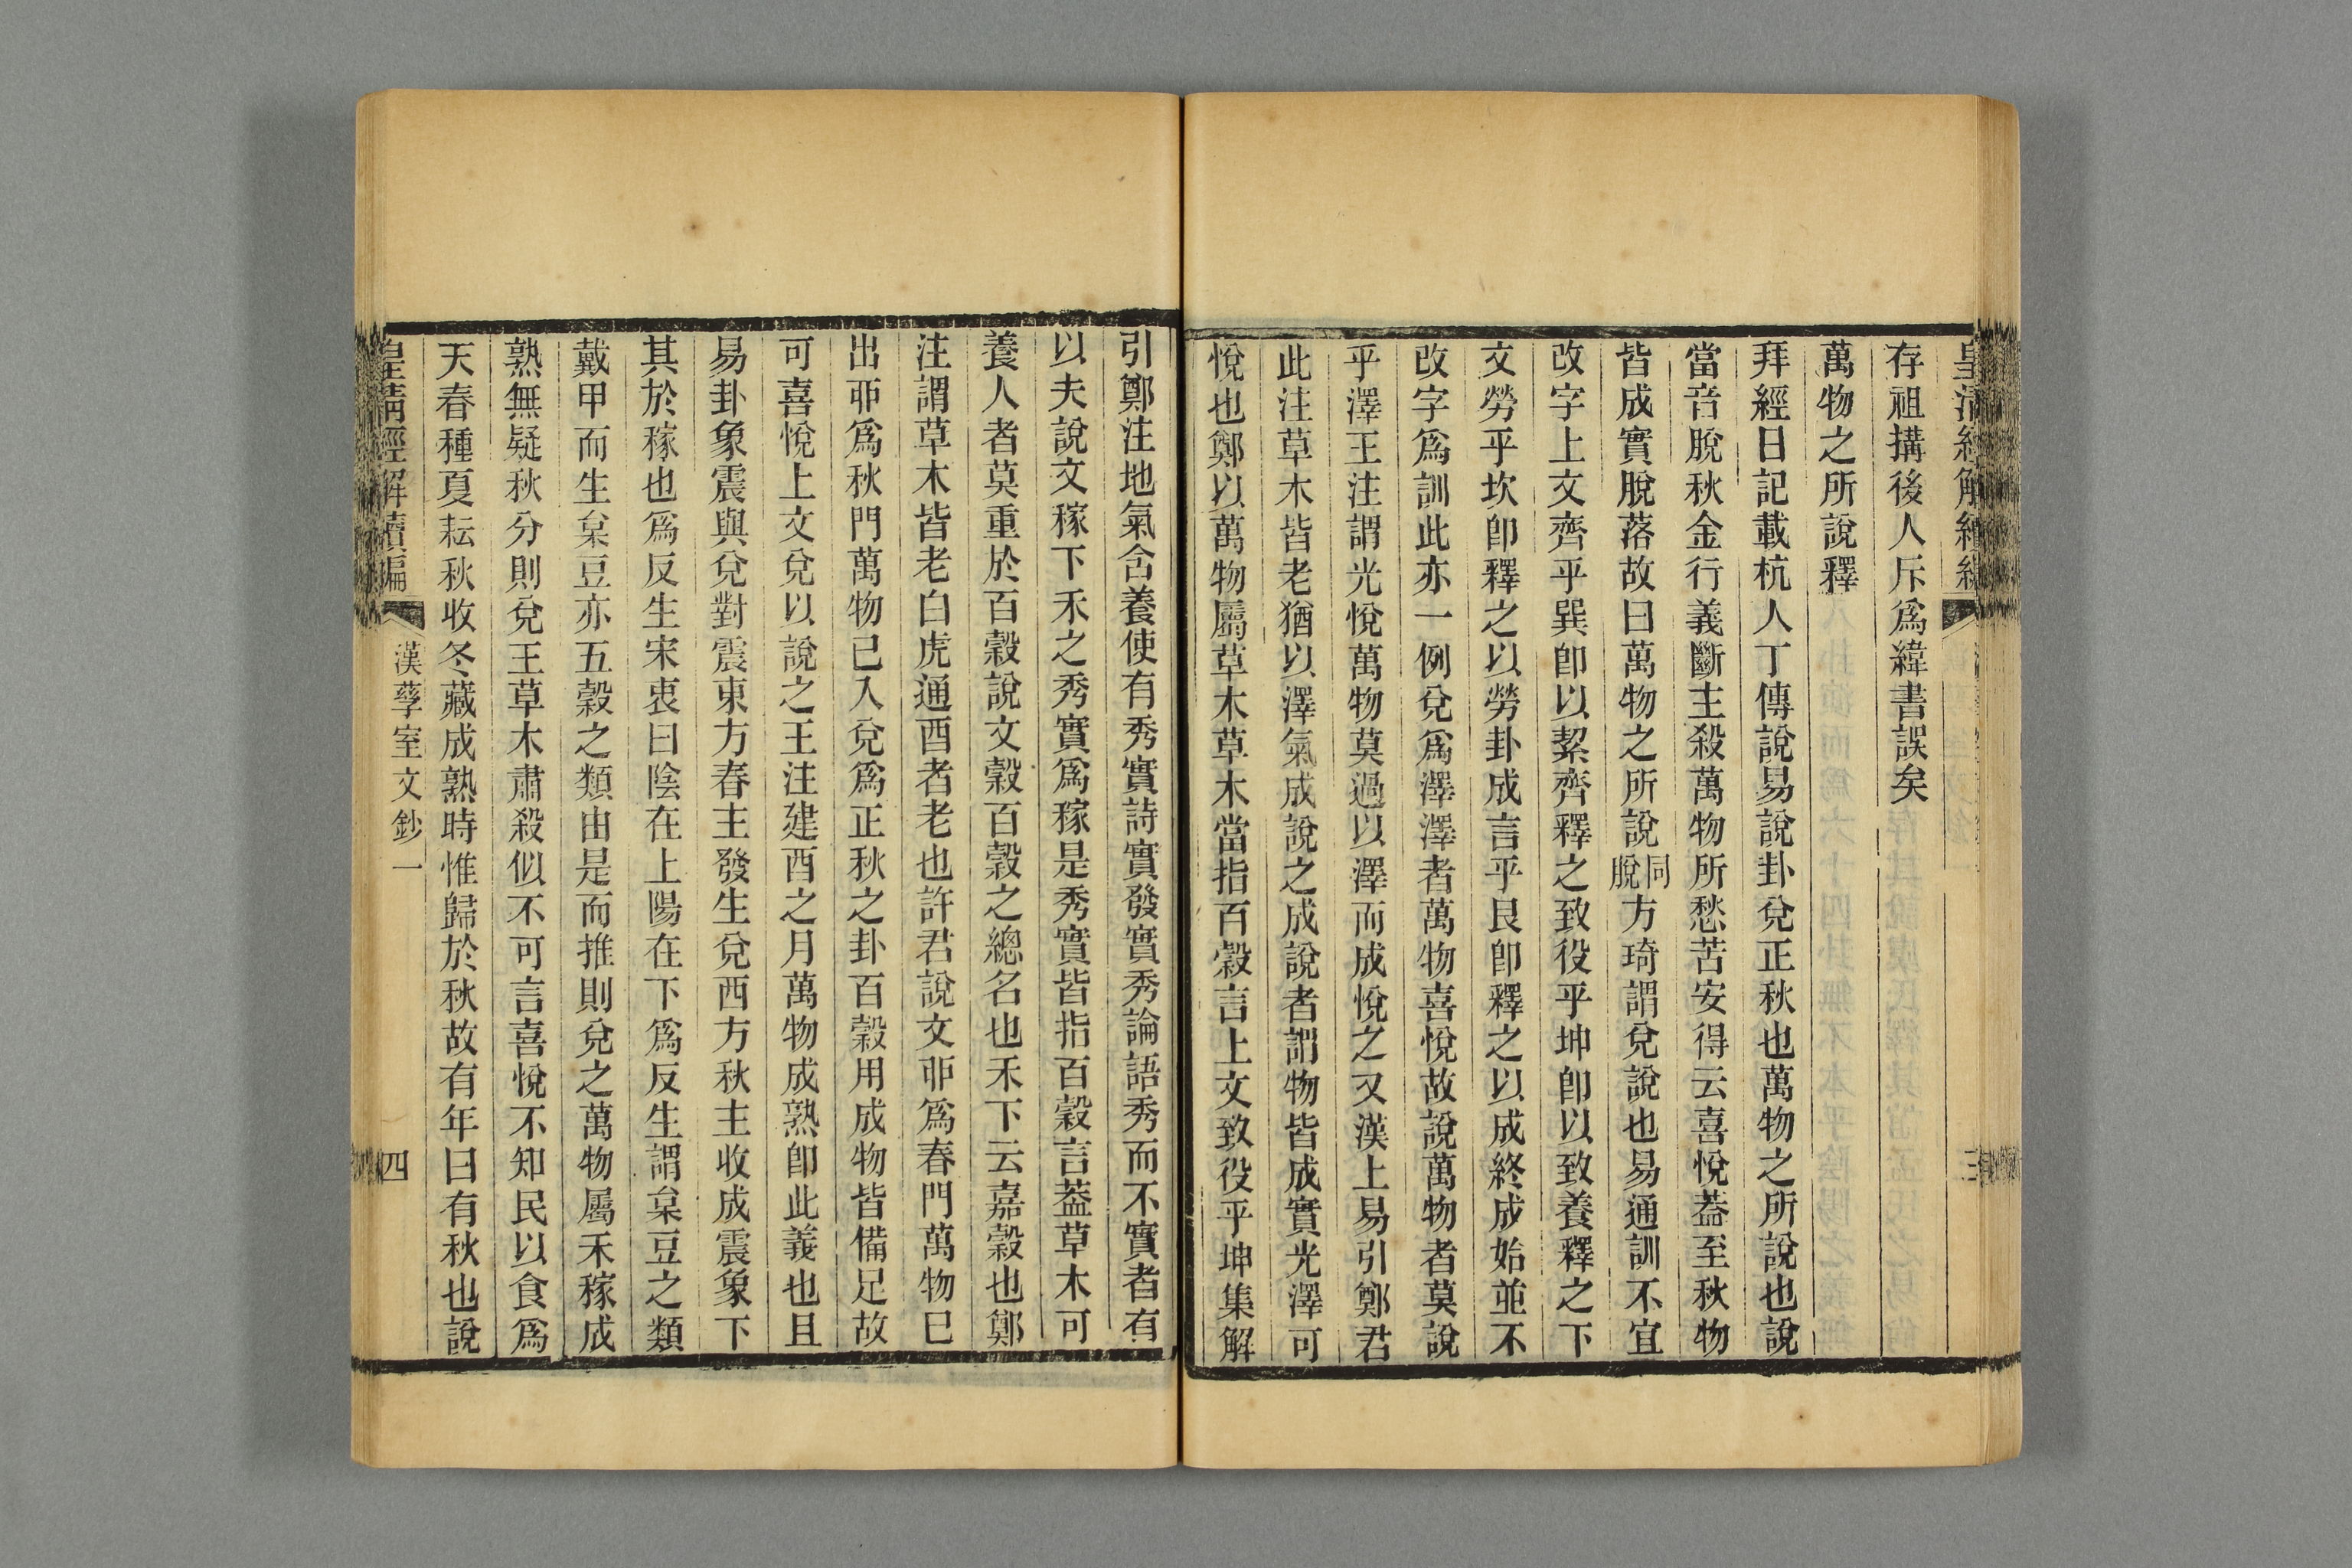 皇清經解續編
存祖搆後人斥爲緯書誤矣
萬物之所說釋
拜經日記載杭人丁傳說易說卦兌正秋也萬物之所說也說
當音脫秋金行義斷主殺萬物所愁苦安得云喜悅葢至秋物
皆成實脫落故曰萬物之所說同脫方琦謂兌說也易通訓不宜
改字上文齊乎巽卽以絜齊釋之致役乎坤卽以致養釋之下
文勞乎坎卽釋之以勞卦成言乎艮卽釋之以成終成始並不
改字爲訓此亦一例兌爲澤澤者萬物喜悅故說萬物者莫說
乎澤王注謂光悅萬物莫過以澤而成悅之又漢上易引鄭君
此注草木皆老猶以澤氣成說之成說者謂物皆成實光澤可
悅也鄭以萬物屬草木草木當指百穀言上文致役乎坤集解
引鄭注地氣含養使有秀實詩實發實秀論語秀而不實者有
以夫說文稼下禾之秀實爲稼是秀實皆指百穀言葢草木可
養人者莫重於百穀說文穀百穀之總名也禾下云嘉穀也鄭
注謂草木皆老白虎通酉者老也許君說文丣爲春門萬物已
出丣爲秋門萬物已入兌爲正秋之卦百穀用成物皆備足故
可喜悅上文兌以說之王注建酉之月萬物成熟卽此義也且
易卦象震與兌對震東方春主發生兌西方秋主收成震象下
其於稼也爲反生宋衷曰陰在上陽在下爲反生謂枲豆之類
戴甲而生枲豆亦五穀之類由是而推則兌之萬物屬禾稼成
熟無疑秋分則兌王草木肅殺似不可言喜悅不知民以食爲
天春種夏耘秋收冬藏成熟時惟歸於秋故有年曰有秋也說
皇清經解續編
漢孳室文鈔一
四